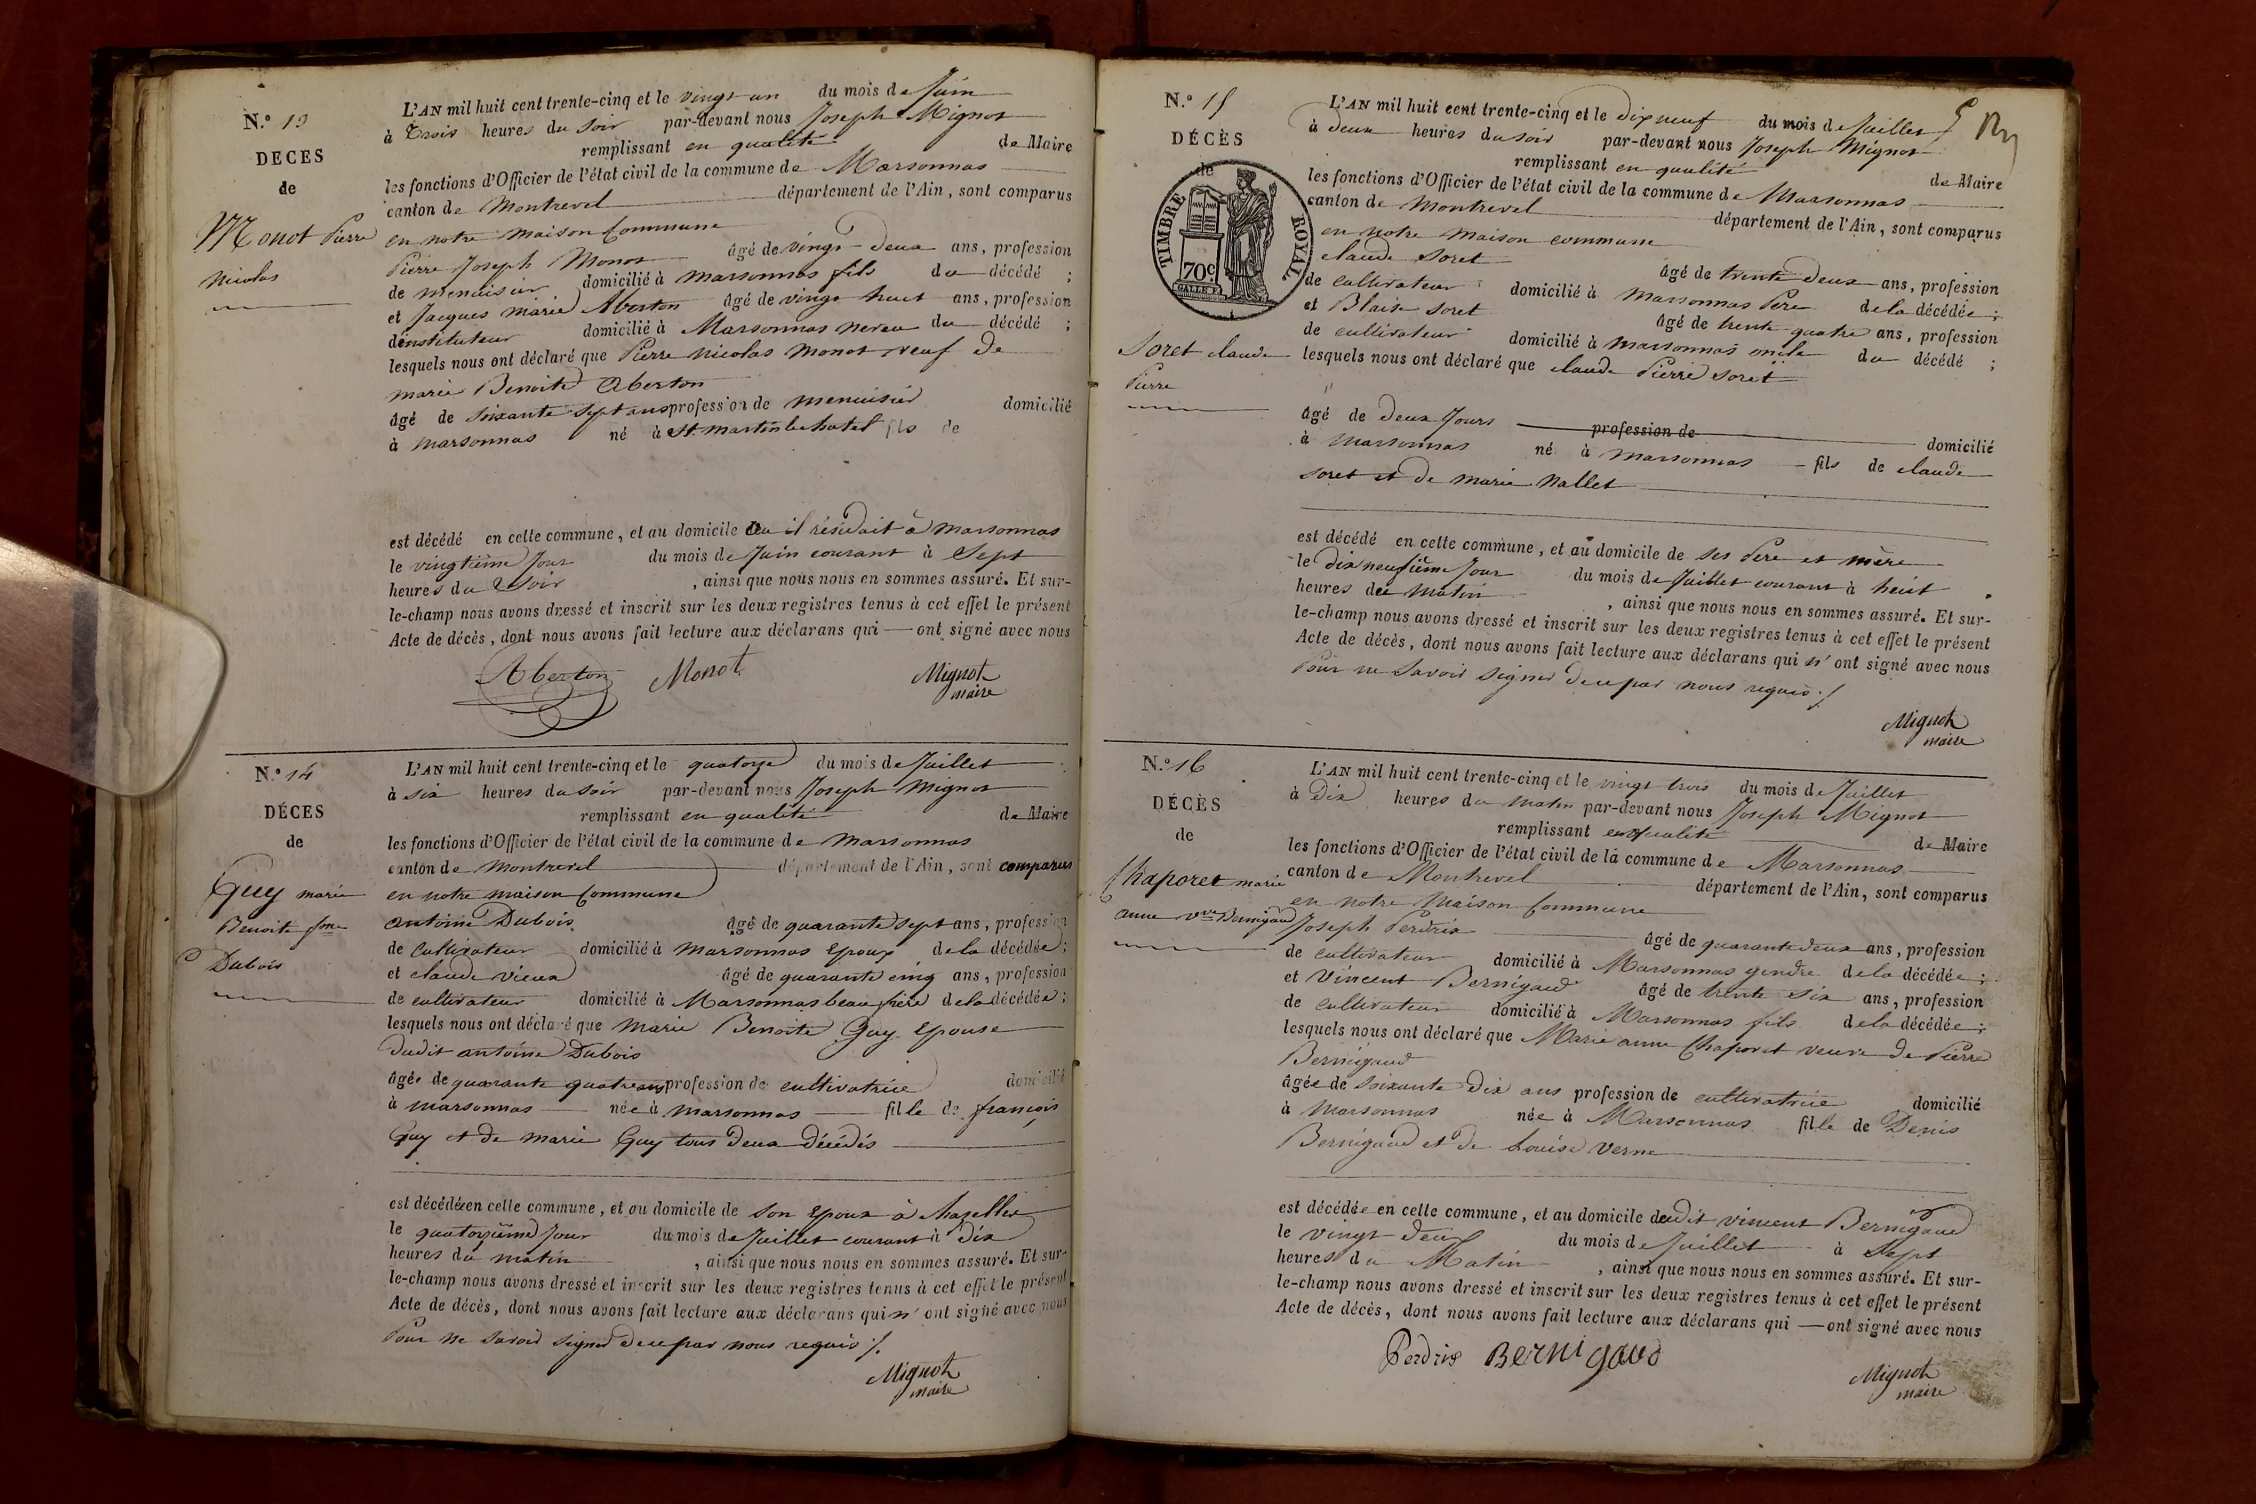 N.o 13
DÉCES
de
Monot Pierre
Nicolas
L'AN mil huit cent trente-cinq et le vingt un du mois de Juin
à Trois heures du soir par-devant nous Joseph Mignot
remplissant en qualité de Maire
les fonctions d'Officier de l'état civil de la commune de Marsonnas
canton de Montrevel département de l'Ain, sont comparus
en notre maison Commune
Pierre Joseph Monot âgé de vingt-deux ans, profession
de menuisier domicilié à marsonnas fils du décédé ;
et Jacques marie Aberton âgé de vingt huit ans, profession
d'instituteur domicilié à Marsonnas neveu du décédé ;
lesquels nous ont déclaré que Pierre nicolas monot veuf de
marie Benoite Aberton
âgé de soixante sept ans profession de menuisier domicilié
à marsonnas né à St. martin le chatel fils de
est décédé en cette commune, et au domicile ou il résidait à marsonnas
le vingtième Jour du mois de Juin courant à Sept
heures du soir , ainsi que nous nous en sommes assuré. Et sur-
le-champ nous avons dressé et inscrit sur les deux registres tenus à cet effet le présent
Acte de décès, dont nous avons fait lecture aux déclarans qui — ont signé avec nous
Aberton Monot Mignot
maire
N.o 14
DÉCES
de
Guy marie
Benoite fme
Dubois
L'AN mil huit cent trente-cinq et le quatorze du mois de Juillet
à six heures du soir par-devant nous Joseph Mignot
remplissant en qualité de Maire
les fonctions d'Officier de l'état civil de la commune de marsonnas
canton de montrevel département de l'Ain, sont comparus
en notre maison Commune
antoine Dubois âgé de quarante sept ans, profession
de Cultivateur domicilié à marsonnas Epoux de la décédée ;
et claude vieux âgé de quarante cinq ans, profession
de cultivateur domicilié à Marsonnas beau frère de la décédée ;
lesquels nous ont déclaré que Marie Benoite Guy Epouse
dudit antoine Dubois
âgée de quarante quatre ans profession de cultivatrice domicilié
à marsonnas — née à marsonnas — fille de françois
Guy et de marie Guy tous deux décédés
est décédée en cette commune, et au domicile de son Epoux à chazelles
le quatorzième Jour du mois de Juillet courant à dix
heures du matin , ainsi que nous nous en sommes assuré. Et sur-
le-champ nous avons dressé et inscrit sur les deux registres tenus à cet effet le présent
Acte de décès, dont nous avons fait lecture aux déclarans qui n'ont signé avec nous
Pour ne savoir signer de ce par nous requis ./.
Mignot
maire
N.o 15
DÉCÈS
de
TIMBRE ROYAL
70c
Soret claude
Pierre
L'AN mil huit cent trente-cinq et le dix neuf du mois de Juillet
à deux heures du soir par-devant nous Joseph Mignot
remplissant en qualité de Maire
les fonctions d'Officier de l'état civil de la commune de Marsonnas
canton de Montrevel département de l'Ain, sont comparus
en notre maison commune
claude soret âgé de trente deux ans, profession
de cultivateur domicilié à Marsonnas Père de la décédée ;
et Blaise soret âgé de trente quatre ans, profession
de cultivateur domicilié à marsonnas oncle du décédé ;
lesquels nous ont déclaré que claude Pierre soret
âgé de deux Jours profession de domicilié
à marsonnas né à marsonnas — fils de claude
soret et de marie Nallet
est décédé en cette commune, et au domicile de ses Père et mère
le dix neufième Jour du mois de Juillet courant à heuit
heures du matin , ainsi que nous nous en sommes assuré. Et sur-
le-champ nous avons dressé et inscrit sur les deux registres tenus à cet effet le présent
Acte de décès, dont nous avons fait lecture aux déclarans qui n'ont signé avec nous
Pour ne savoir signer de ce par nous requis ./.
Mignot
maire
N.o 16
DÉCÈS
de
Chaporet marie
anne vve Bernigaud
L'AN mil huit cent trente-cinq et le vingt trois du mois de Juillet
à Dix heures du matin par-devant nous Joseph Mignot
remplissant en qualité de Maire
les fonctions d'Officier de l'état civil de la commune de Marsonnas
canton de Montrevel département de l'Ain, sont comparus
en notre Maison Commune
Joseph Perdrix âgé de quarante deux ans, profession
de cultivateur domicilié à Marsonnas gendre de la décédée ;
et Vincent Bernigaud âgé de trente six ans, profession
de cultivateur domicilié à Marsonnas fils de la décédée ;
lesquels nous ont déclaré que Marie anne Chaporet veuve de Pierre
Bernigaud
âgée de soixante Dix ans profession de cultivatrice domicilié
à Marsonnas née à Marsonnas fille de Denis
Bernigaud et de Louise Verne
est décédée en cette commune, et au domicile dudit vincent Bernigaud
le vingt deux du mois de Juillet à Sept
heures du Matin , ainsi que nous nous en sommes assuré. Et sur-
le-champ nous avons dressé et inscrit sur les deux registres tenus à cet effet le présent
Acte de décès, dont nous avons fait lecture aux déclarans qui — ont signé avec nous
Perdrix Bernigaud
Mignot
maire